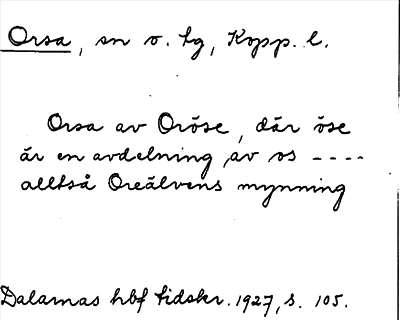 Orsa, sn o. tg, Kopp. l.
Orsa av Oröse, där öse
är en avdelning av os ----
alltså Oreälvens mynning
Dalarnas hbf tidskr. 1927, s. 105.